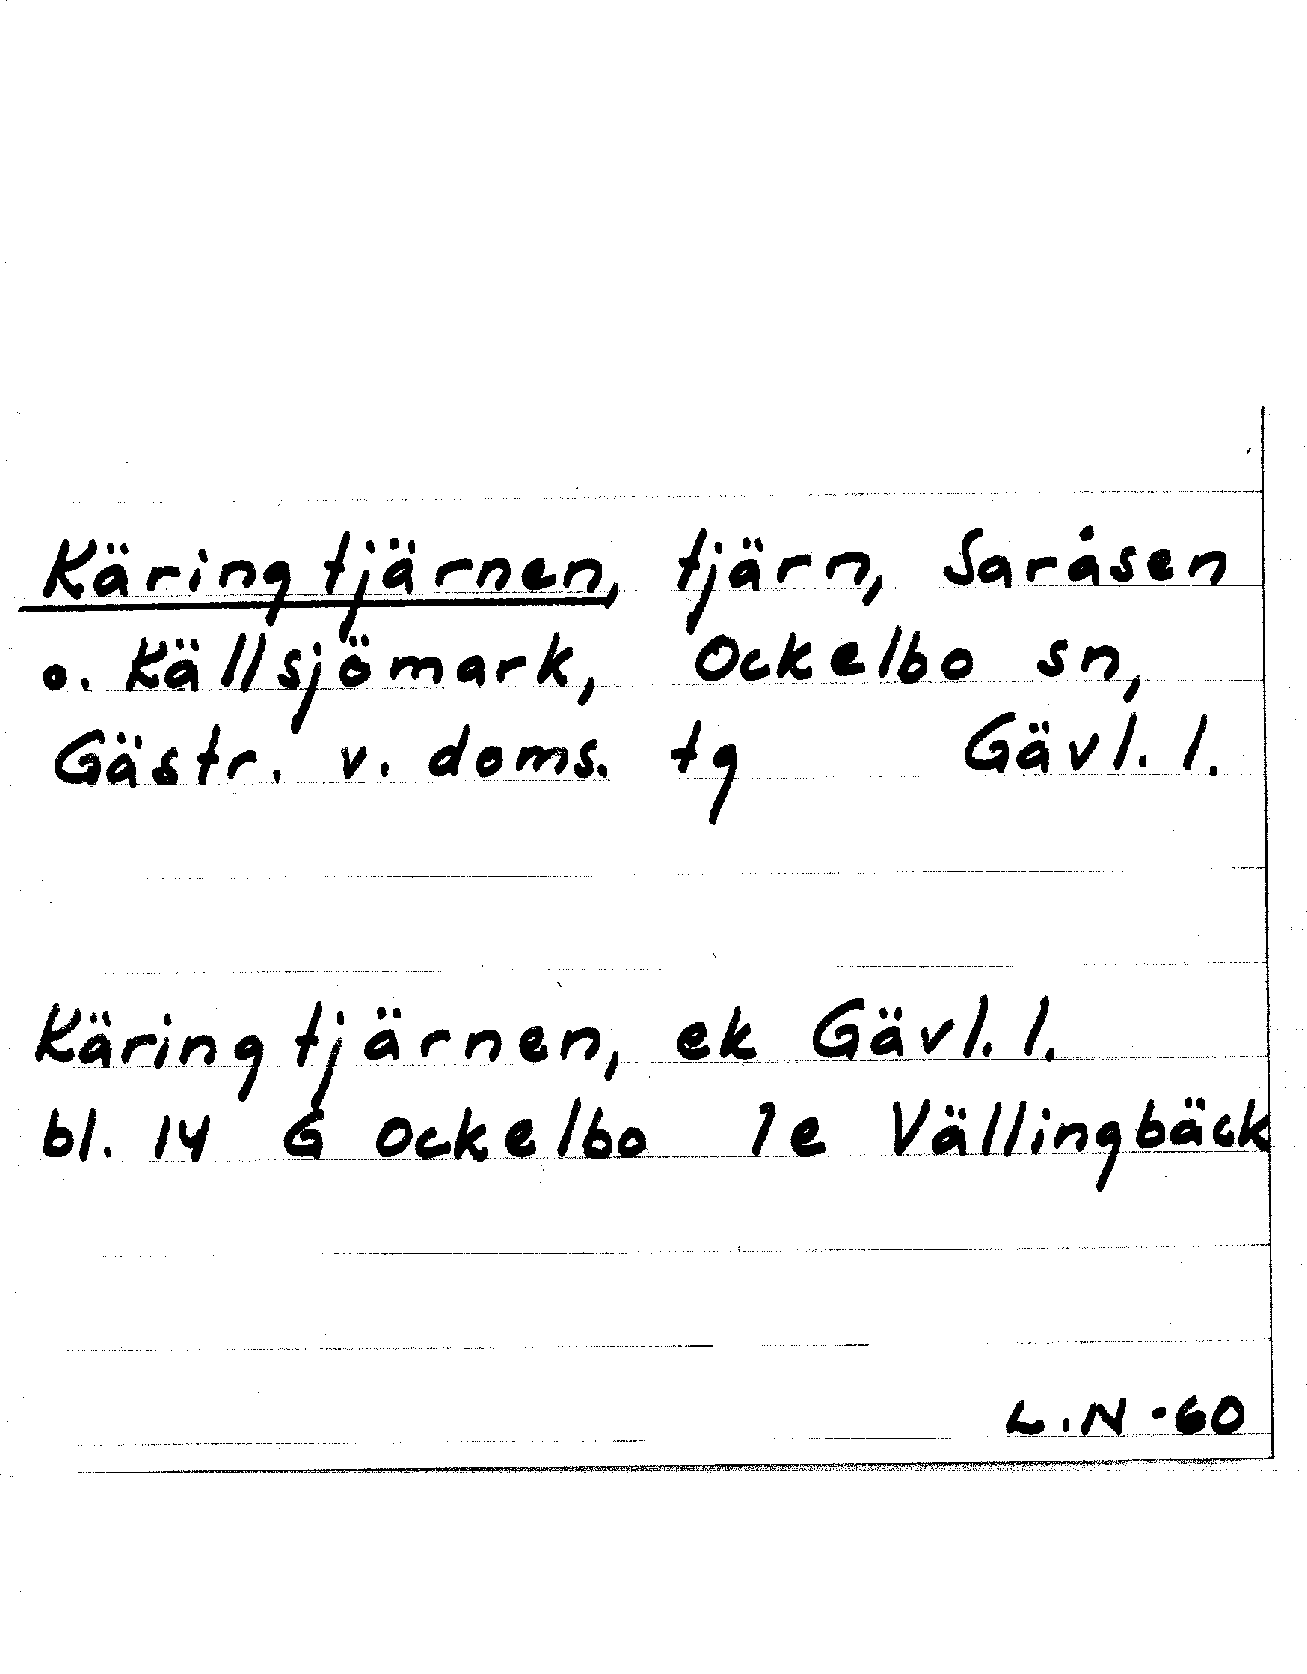 Käringtjärnen, tjärn, Saråsen
o. Källsjömark, Ockelbo sn,
Gästr. v. doms. tg Gävl. l.
Käringtjärnen, ek Gävl. l.
bl. 14 G Ockelbo 1e Vällingbäck
L.N -60